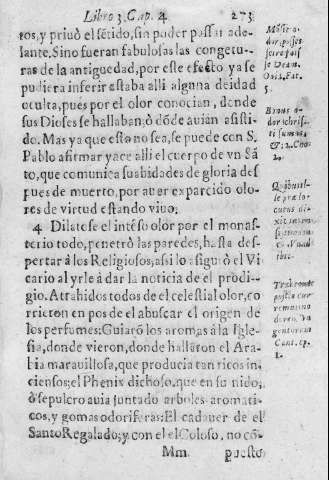 Libro 3. Cap. 4. 273
tos, y priuò el sẽtido, sin poder passar ade-
lante. Sino fueran fabulosas las congetu-
ras de la antiguedad, por este efecto ya se
pudiera inferir estaba alli alguna deidad
oculta, pues por el olor conocian, donde
sus Dioses se hallaban, ò dõde auian asisti-
do. Mas ya que esto no sea, se puede con S.
Pablo afirmar yace alli el cuerpo de vn Sã-
to, que comunica suabidades de gloria des
pues de muerto, por auer esparcido olo-
res de virtud estando viuo.
4 Dilatose el intẽso olor por el monas-
terio todo, penetrò las paredes, hasta des-
pertar a los Religiosos; asi lo asigurò el Vi
cario al yrle à dar la noticia de el prodi-
gio. Atrahidos todos de el celestial olor, co
rrieron en pos de el abuscar el origen de
los perfumes: Guiarõ los aromas à la Igle-
sia, donde vieron, donde hallaron el Ara-
bia marauillosa, que producia tan ricos in-
ciensos; el Phenix dichoso, que en su nido,
ò sepulcro auia juntado arboles aromati-
cos, y gomas odoriferas: El cadauer de el
Santo Regalado; y con el el Coloso, no cõ-
Mm puesto
dor, posses-
5.
Bonus o-
dor christi
sumus,
2. Cho.
2.
Trahe me
post te cur
remus in o
dorem vn
guentorum
Cant. cp.
1.